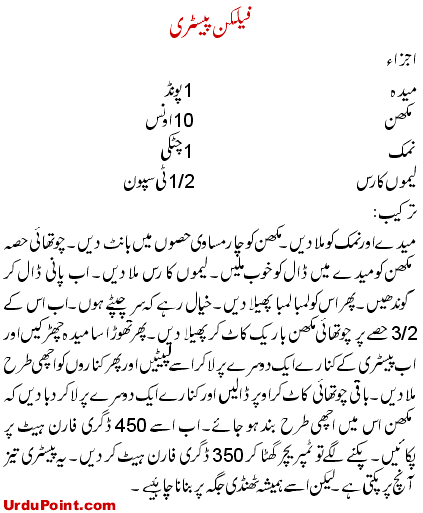 فیلکن پیسٹری
اجزاء
میدہ 1 پونڈ
مکھن 10 اونس
نمک 1 چٹکی
لیموں کا رس 1/2 ٹی سپون
ترکیب :
میدے اور نمک کو ملا دیں۔ مکھن کو چار مساوی حصوں میں بانٹ دیں۔ چوتھائی حصہ
مکھن کو میدے میں ڈال کو خوب ملیں۔ لیموں کا رس ملا دیں۔ اب پانی ڈال کر
گوندھیں۔ پھر اس کو لمبا لمبا پھیلا دیں۔ خیال رہے کہ سر چپٹے ہوں۔ اب اس کے
3/2 حصے پر چوتھائی مکھن باریک کاٹ کر پھیلا دیں۔ پھر تھوڑا سا میدہ چھڑکیں اور
اب پیسٹری کے کنارے ایک دوسرے پر لا کر اسے لپیٹیں اور پھر کناروں کو اچھی طرح
ملا دیں۔ باقی چوتھائی کاٹ کر اوپر ڈالیں اور کنارے ایک دوسرے پر لا کر دبا دیں کہ
مکھن اس میں اچھی طرح بند ہو جائے۔ اب اسے 450 ڈگری فارن ہیٹ پر
پکائیں۔ پکنے لگے تو ٹمپریچر گھٹا کر 350 ڈگری فارن ہیٹ کر دیں۔ یہ پیسٹری تیز
آنچ پر پکتی ہے۔ لیکن اسے ہمیشہ ٹھنڈی جگہ پر بنانا چاہیے۔
UrduPoint.com